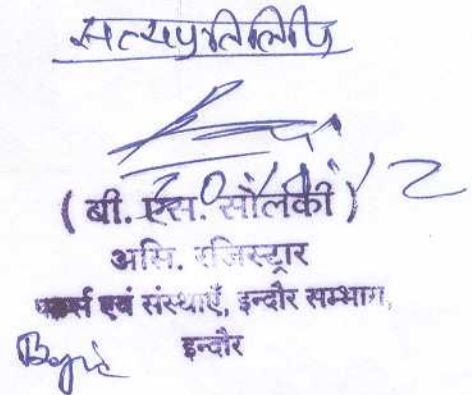 सत्यप्रतिलिपि
( बी. एस. सोलंकी )
असि. रजिस्ट्रार
फर्म्स एवं संस्थाएँ, इन्दौर सम्भाग,
इन्दौर